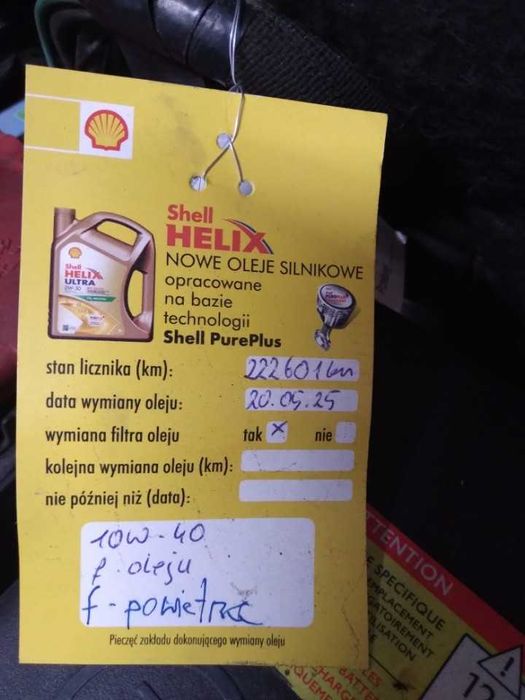 Shell
HELIX
NOWE OLEJE SILNIKOWE
opracowane
na bazie
technologii
Shell PurePlus
Shell
HELIX
ULTRA
stan licznika (km): 222601 km
data wymiany oleju: 20.05.25
wymiana filtra oleju tak x nie
kolejna wymiana oleju (km):
nie później niż (data):
10W-40
f. oleju
f-powietrza
Pieczęć zakładu dokonującego wymiany oleju
ATTENTION
SPECIFIQUE